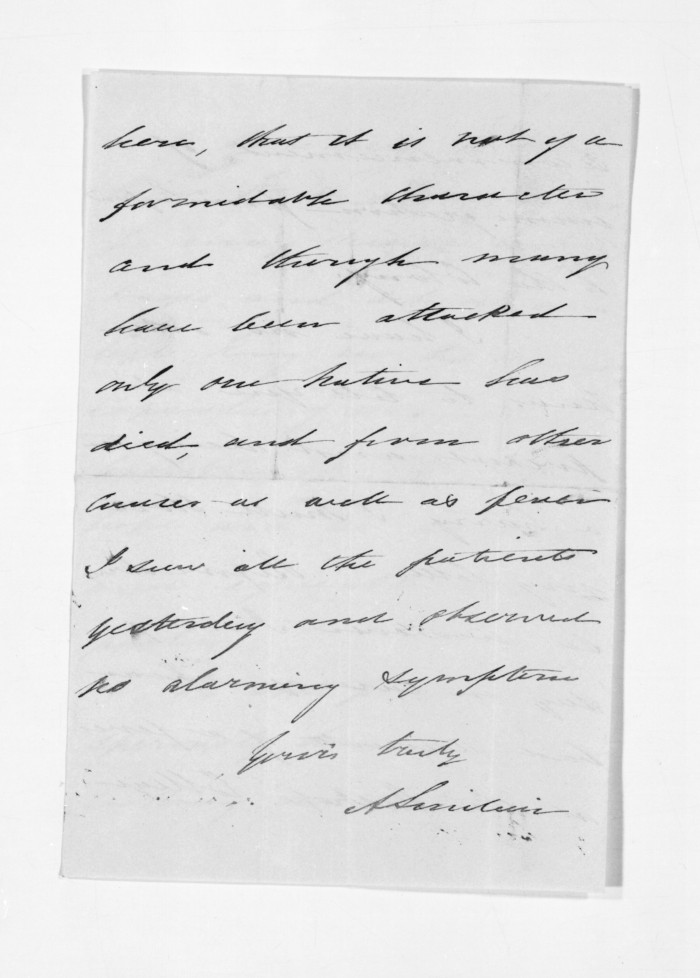 here, that it is not of a
formidable character
and though many
have been attacked
only one native has
died, and from other
causes as well as fever
I saw all the patients
yesterday and observed
no alarming symptom
Yours truly
A Sinclair